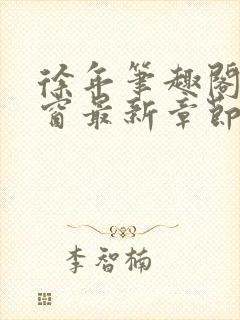 徐年笔趣阁
窗最新章节
李智楠